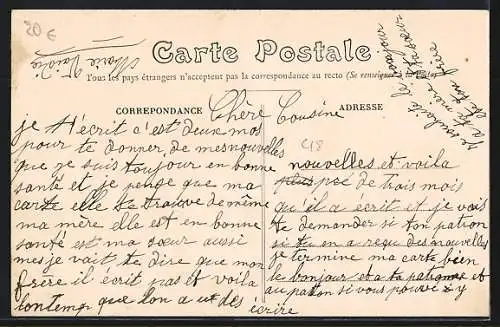 20 €
Marie
Carte Postale
Tous les pays étrangers n'acceptent pas la correspondance au recto (Se renseigner à la Poste)
CORREPONDANCE
ADRESSE
Chère Cousine
je t'écrit c'est deux mos
pour te donner de mes nouvelles
que je suis toujour en bonne
santé et je penge que ma
carte elle te trouve de même
ma mère elle est en bonne
santé est ma sœur aussi
mes je vait te dire que mon
frère il écrit pas et voila
lontemp que l'on a
des
écrire
C18
nouvelles et voila
plus pré de trais mois
qu'il a écrit et je vais
te demander si ton patron
si tu en a reçu des nouvelles
je termine ma carte bien
le bonjour et a ta patronne et
au patton si vous pouvé z y
souhaite le bonjour
a ta mère
et ton frère